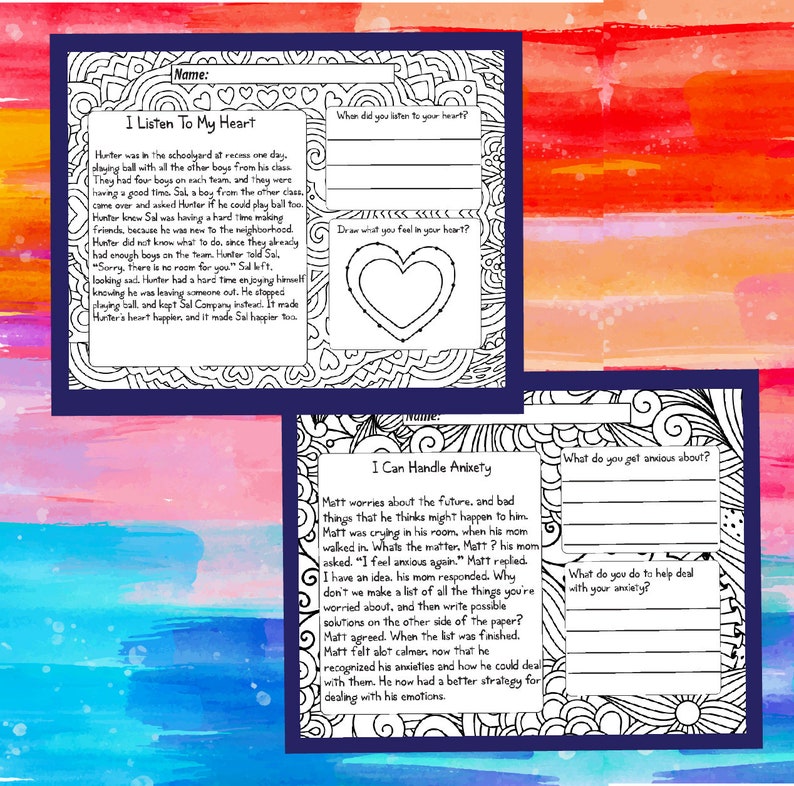 Name:
I Listen To My Heart
Hunter was in the schoolyard at recess one day,
playing ball with all the other boys from his class.
They had four boys on each team, and they were
having a good time. Sal, a boy from the other class,
came over and asked Hunter if he could play ball too.
Hunter knew Sal was having a hard time making
friends, because he was new to the neighborhood.
Hunter did not know what to do, since they already
had enough boys on the team. Hunter told Sal,
“Sorry, there is no room for you.” Sal left,
looking sad. Hunter had a hard time enjoying himself
knowing he was leaving someone out. He stopped
playing ball, and kept Sal Company instead. It made
Hunter's heart happier, and it made Sal happier too.
When did you listen to your heart?
Draw what you feel in your heart?
Name:
I Can Handle Anixety
Matt worries about the future, and bad
things that he thinks might happen to him.
Matt was crying in his room, when his mom
walked in. Whats the matter, Matt ? his mom
asked. “I feel anxious again.” Matt replied.
I have an idea, his mom responded. Why
don't we make a list of all the things you're
worried about, and then write possible
solutions on the other side of the paper?
Matt agreed. When the list was finished,
Matt felt alot calmer, now that he
recognized his anxieties and how he could deal
with them. He now had a better strategy for
dealing with his emotions.
What do you get anxious about?
What do you do to help deal
with your anxiety?